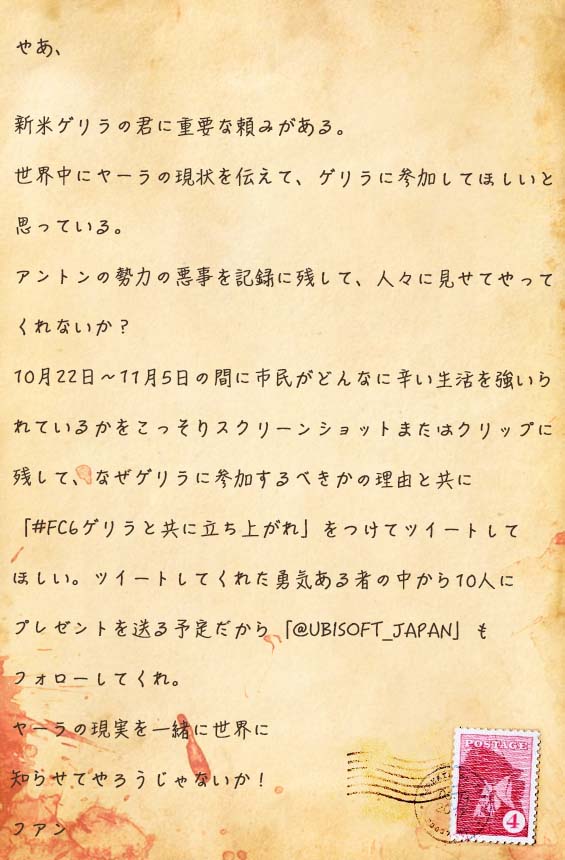 やあ、
新米ゲリラの君に重要な頼みがある。
世界中にヤーラの現状を伝えて、ゲリラに参加してほしいと
思っている。
アントンの勢力の悪事を記録に残して、人々に見せてやって
くれないか？
10月22日～11月5日の間に市民がどんなに辛い生活を強いら
れているかをこっそりスクリーンショットまたはクリップに
残して、なぜゲリラに参加するべきかの理由と共に
「#FC6ゲリラと共に立ち上がれ」をつけてツイートして
ほしい。ツイートしてくれた勇気ある者の中から10人に
プレゼントを送る予定だから「@UBISOFT_JAPAN」も
フォローしてくれ。
ヤーラの現実を一緒に世界に
知らせてやろうじゃないか！
フアン
POSTAGE
4